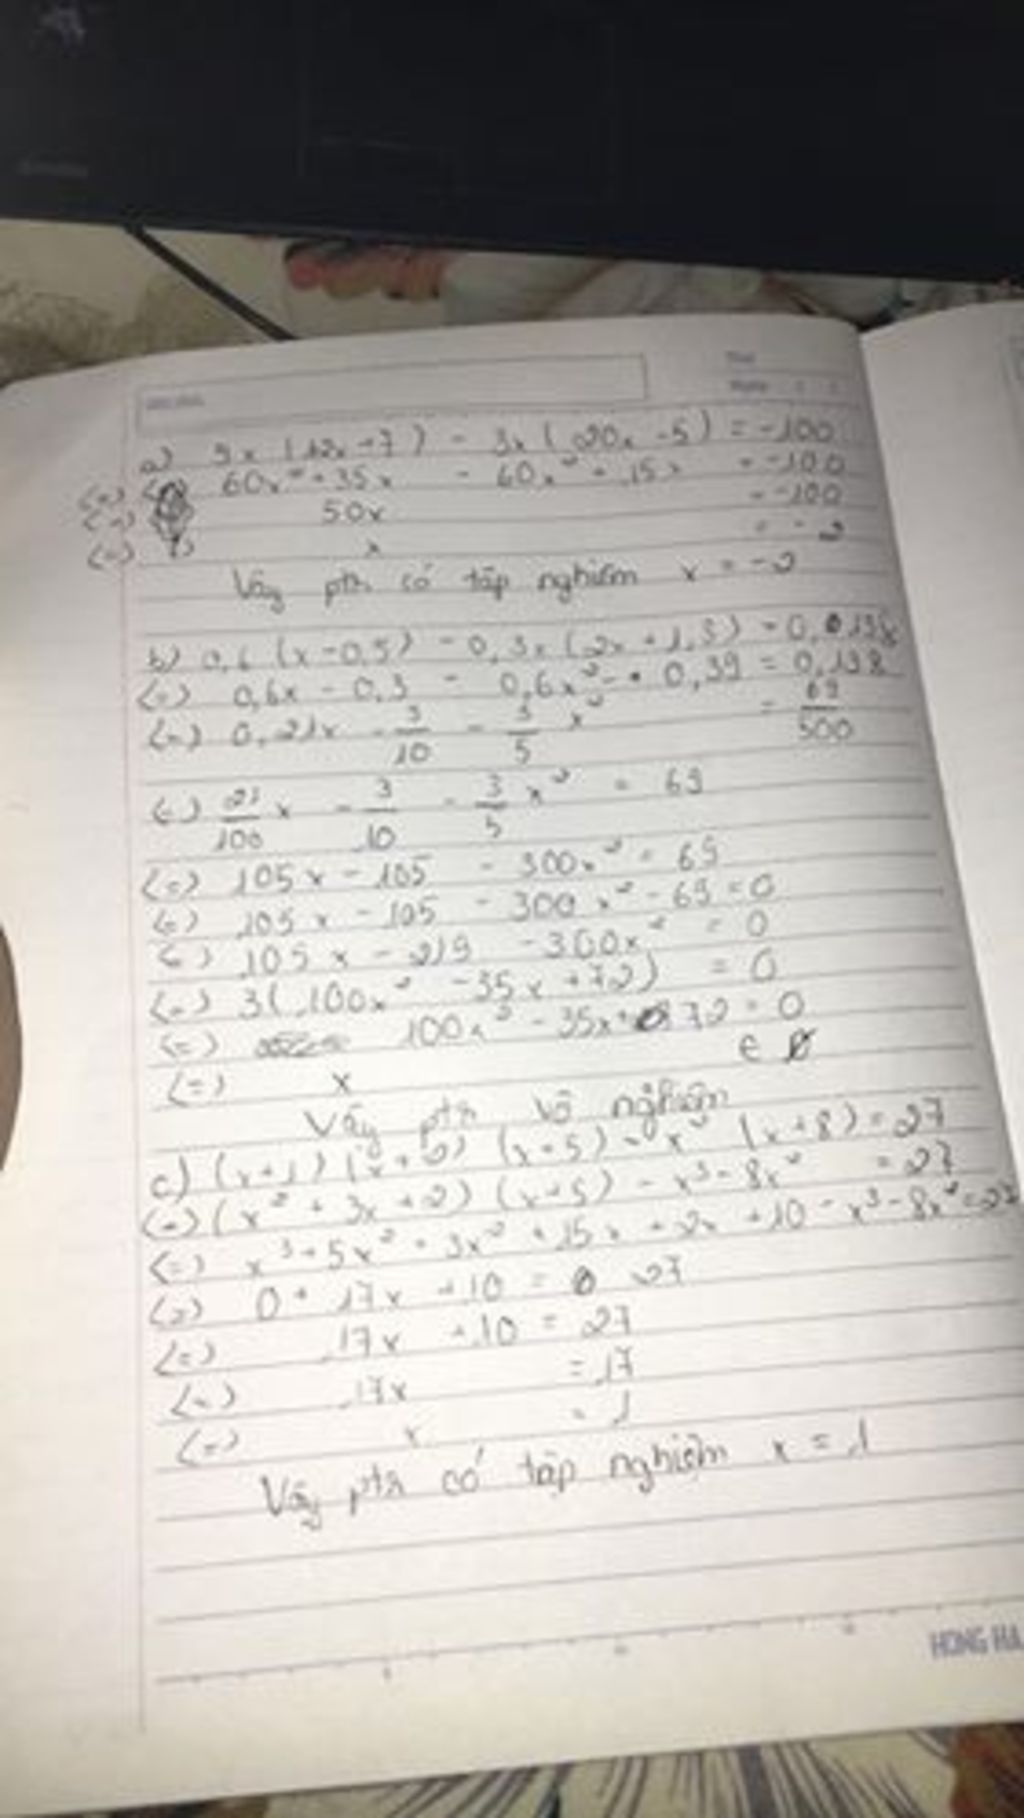 a) 5x (12x + 7) - 3x (20x - 5) = -100
(=) 60x² + 35x - 60x² + 15x = -100
(=) 50x = -100
(=) x = -2
Vậy ptr có tập nghiệm x = -2
b) 0,6 (x - 0,5) - 0,3x (2x + 1,3) = 0,138
(=) 0,6x - 0,3 - 0,6x² - 0,39 = 0,138
(=) 0,21x - 3/10 - 3/5 x² = 69/500
(=) 21/100 x - 3/10 - 3/5 x² = 69
(=) 105x - 105 - 300x² = 69
(=) 105x - 105 - 300x² - 69 = 0
(=) 105x - 219 - 300x² = 0
(=) 3(100x² - 35x + 72) = 0
(=) 100x² - 35x + 72 = 0
(=) x ∈ ∅
Vậy ptr vô nghiệm
c) (x+1) (x+2) (x+5) - x² (x+8) = 27
(=) (x² + 3x + 2) (x+5) - x³ - 8x² = 27
(=) x³ + 5x² + 3x² + 15x + 2x + 10 - x³ - 8x² = 27
(=) 0 + 17x + 10 = 27
(=) 17x + 10 = 27
(=) 17x = 17
(=) x = 1
Vậy ptr có tập nghiệm x = 1
HONG HA